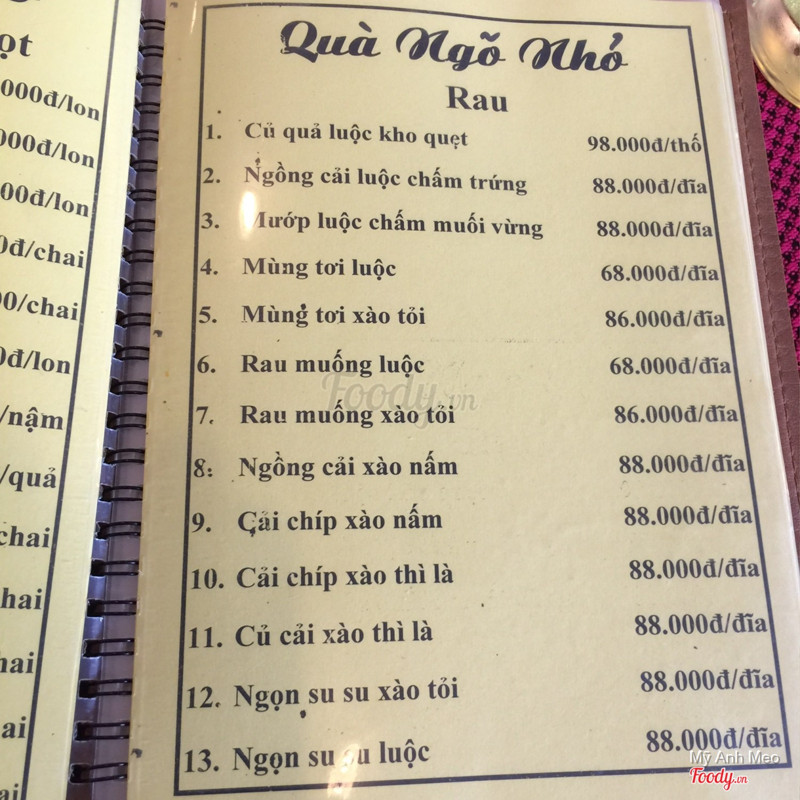 ọt
000đ/lon
000đ/lon
00đ/lon
0đ/chai
00/chai
0đ/lon
/nậm
/quả
chai
hai
hai
ai
Quà Ngõ Nhỏ
Rau
1. Củ quả luộc kho quẹt 98.000đ/thố
2. Ngồng cải luộc chấm trứng 88.000đ/đĩa
3. Mướp luộc chấm muối vừng 88.000đ/đĩa
4. Mùng tơi luộc 68.000đ/đĩa
5. Mùng tơi xào tỏi 86.000đ/đĩa
6. Rau muống luộc 68.000đ/đĩa
7. Rau muống xào tỏi 86.000đ/đĩa
8. Ngồng cải xào nấm 88.000đ/đĩa
9. Cải chíp xào nấm 88.000đ/đĩa
10. Cải chíp xào thì là 88.000đ/đĩa
11. Củ cải xào thì là 88.000đ/đĩa
12. Ngọn su su xào tỏi 88.000đ/đĩa
13. Ngọn su su luộc 88.000đ/đĩa
Foody.vn
Mỹ Anh Meo
Foody.vn